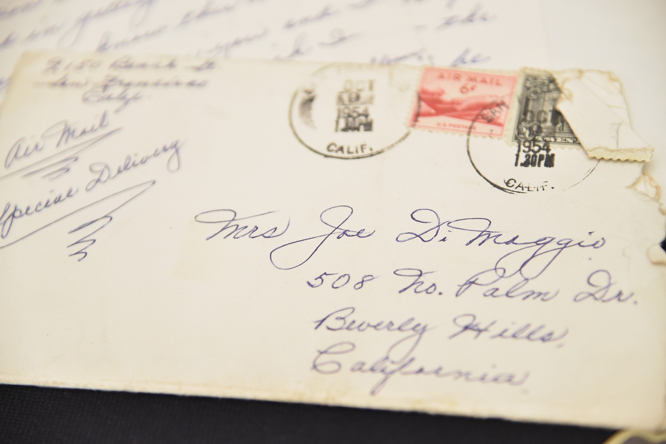 you and I
2150 Beach St
San Francisco
Calif.
Air Mail
Special Delivery
OCT
1954
CALIF.
AIR MAIL
6¢
U.S. POSTAGE
SAN
OCT
1954
1:30 PM
CALIF.
Mrs Joe Di Maggio
508 No. Palm Dr.
Beverly Hills,
California